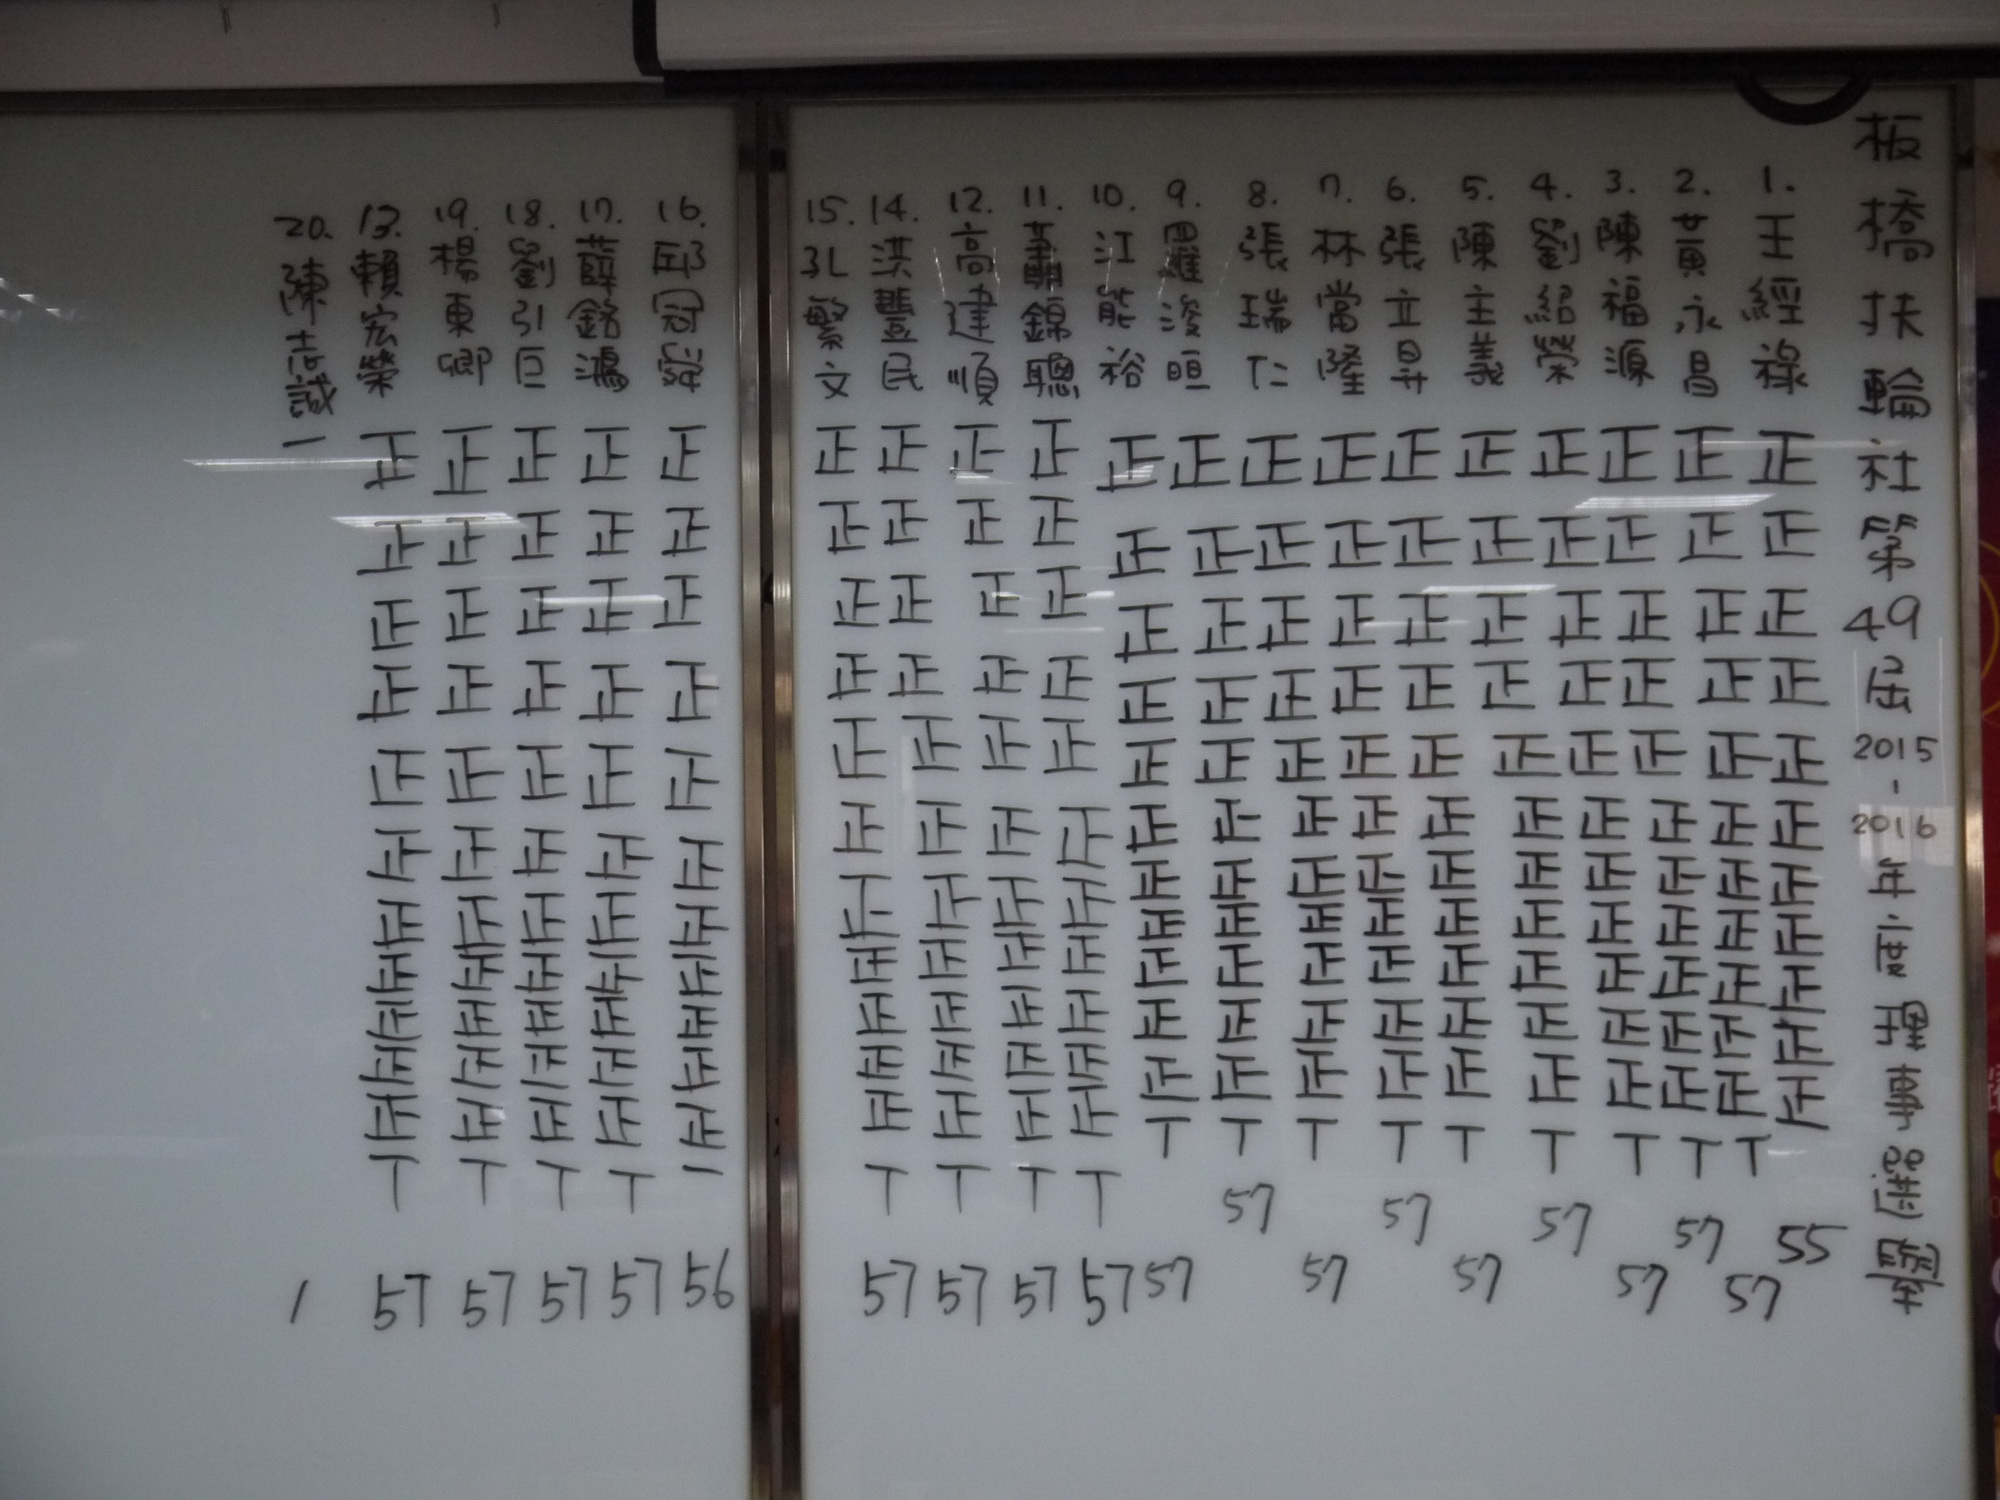 板橋扶輪社第49屆2015-2016年度理事選舉
1.王經祿正正正正正正正正正正正55
2.黃永昌正正正正正正正正正正正丅57
3.陳福源正正正正正正正正正正正丅57
4.劉紹榮正正正正正正正正正正正丅57
5.陳主義正正正正正正正正正正正丅57
6.張立昇正正正正正正正正正正正丅57
7.林當隆正正正正正正正正正正正丅57
8.張瑞仁正正正正正正正正正正正丅57
9.羅浚晅正正正正正正正正正正正丅57
10.江能裕正正正正正正正正正正正丅57
11.蕭錦聰正正正正正正正正正正正丅57
12.高建順正正正正正正正正正正正丅57
14.洪豐民正正正正正正正正正正正丅57
15.孔繁文正正正正正正正正正正正丅57
16.邱冠舜正正正正正正正正正正正一56
17.薛銘鴻正正正正正正正正正正正丅57
18.劉引巨正正正正正正正正正正正丅57
19.楊東卿正正正正正正正正正正正丅57
13.賴宏榮正正正正正正正正正正正丅57
20.陳志誠一1